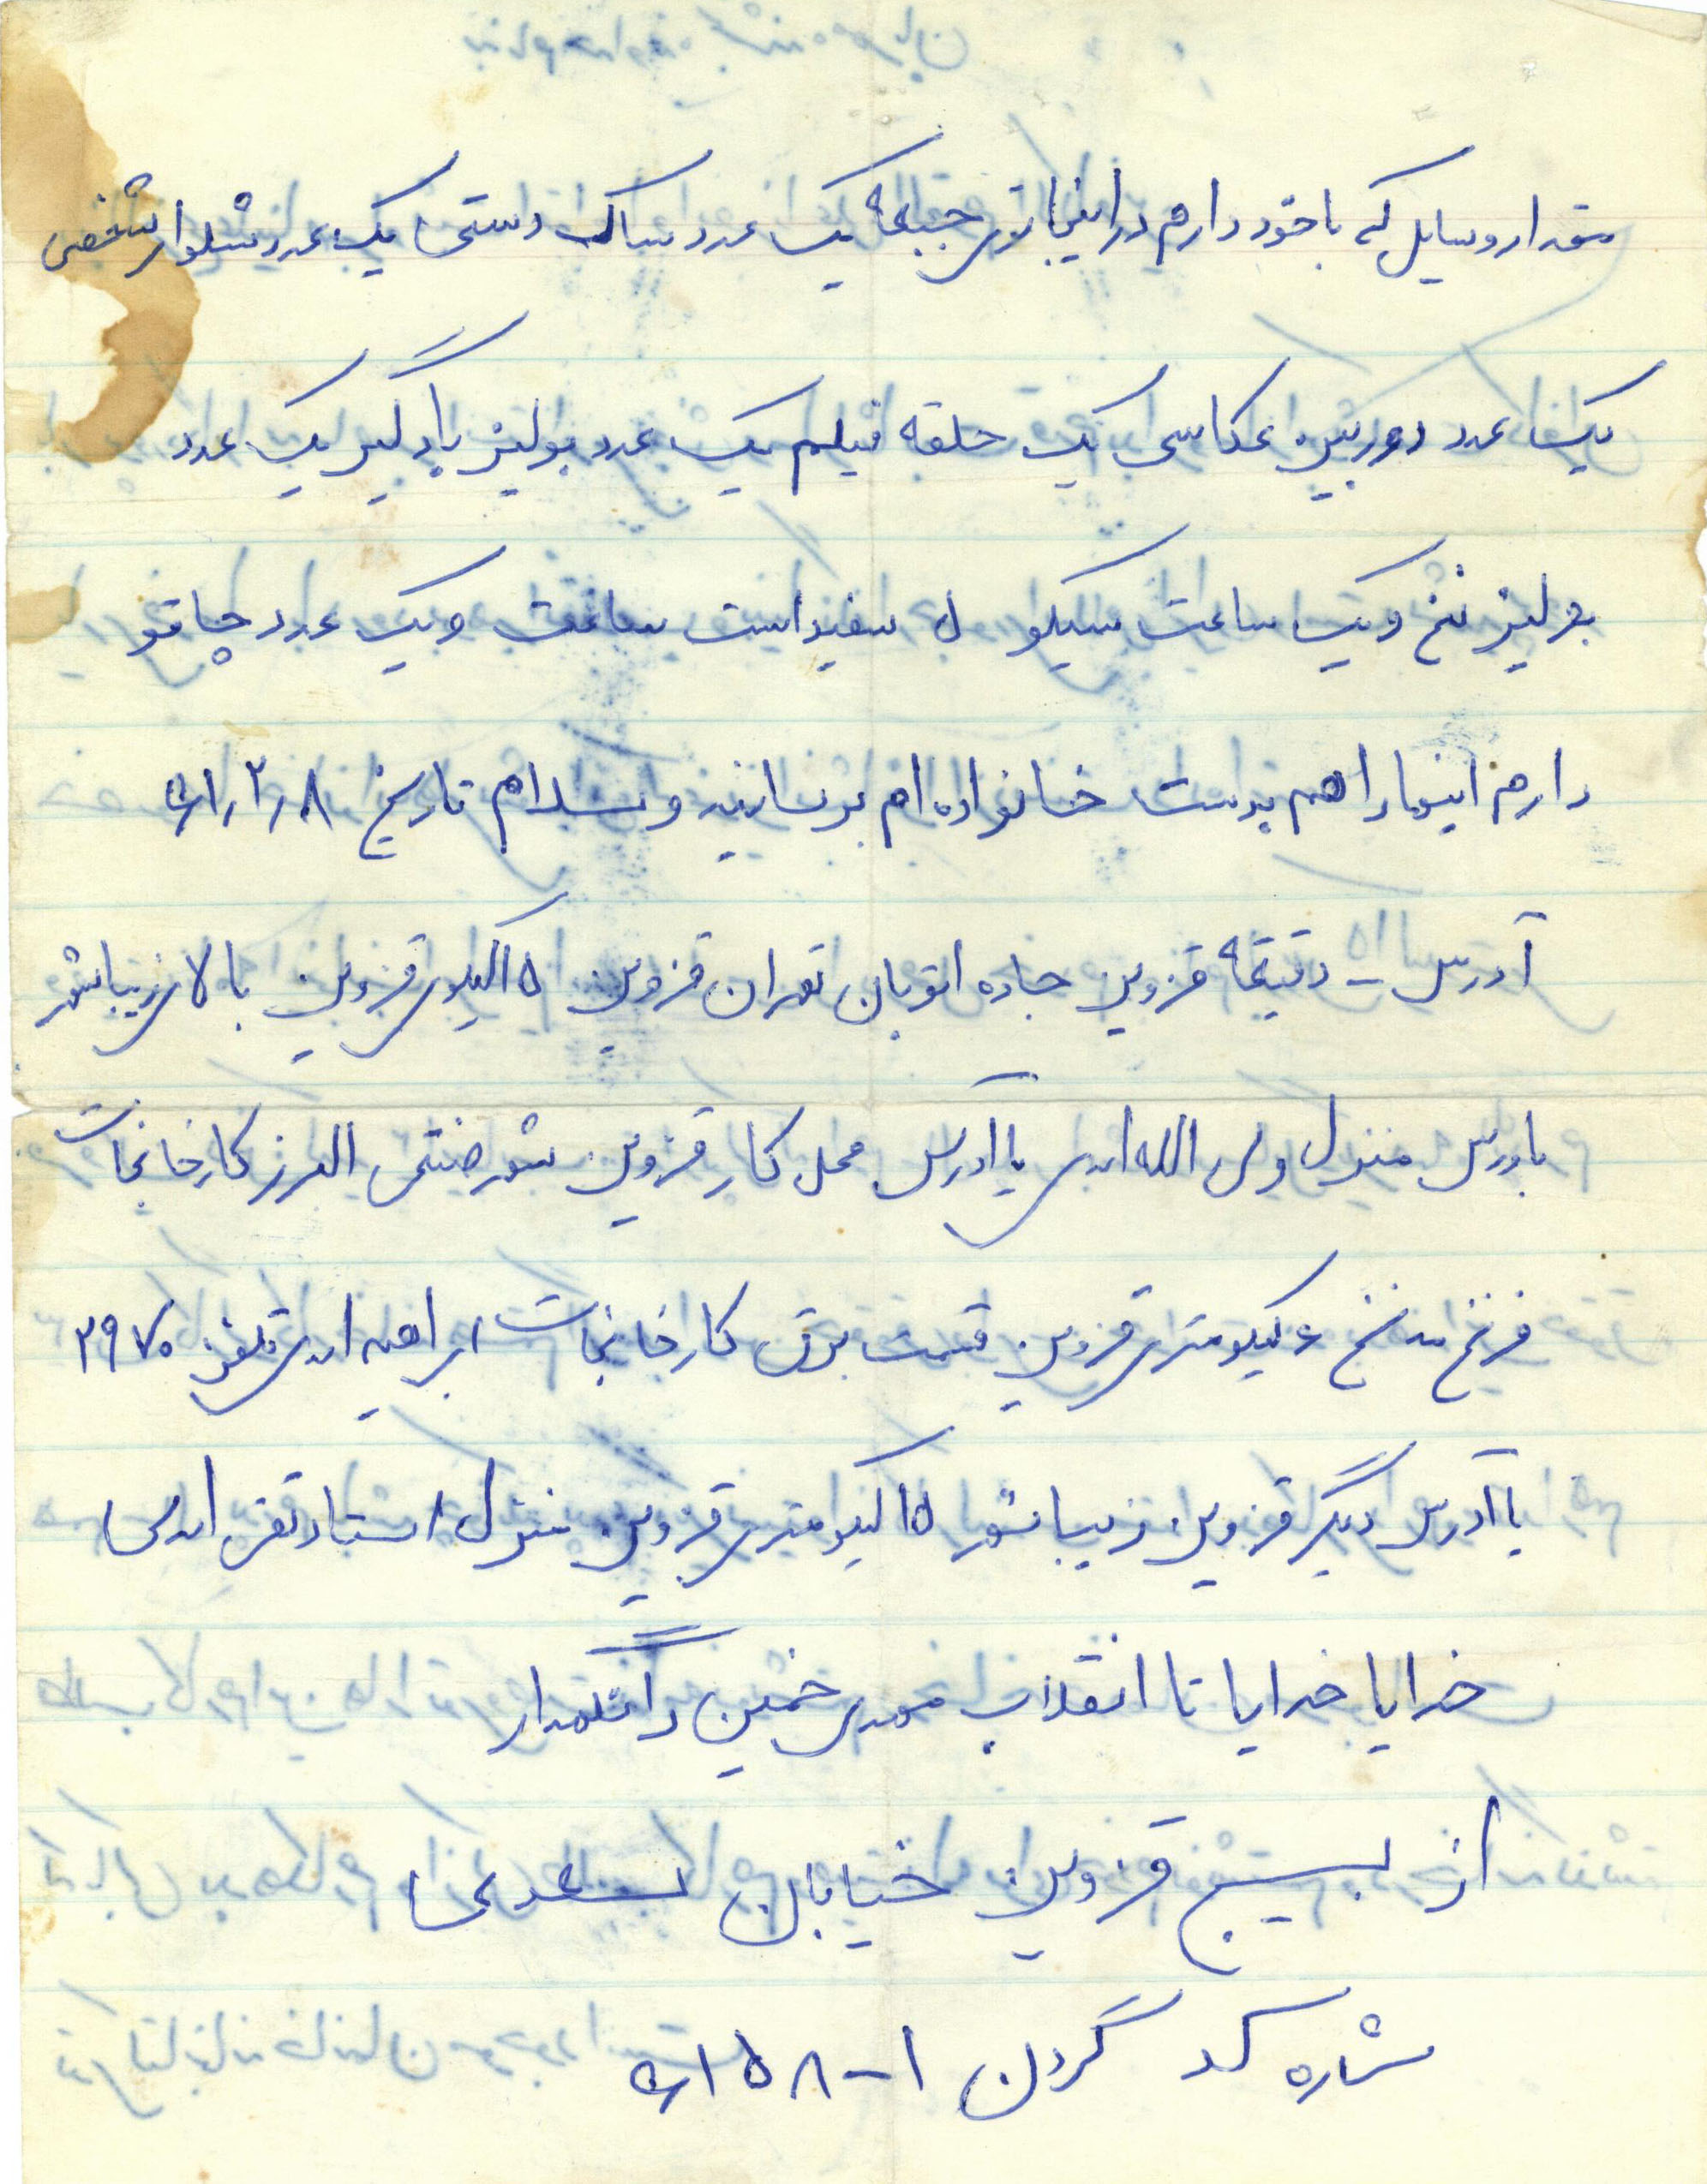 مقدار وسایل که با خود دارم در اینجا توی جبهه یک عدد ساک دستی یک عدد شلوار شخصی
یک عدد دوربین عکاسی یک حلقه فیلم یک عدد بولیز بادگیر یک عدد
بولیز نخ و یک ساعت سیکو ۵ سفید است ساعت و یک عدد چاقو
دارم اینها را هم بدست خانواده ام برسانید وسلام تاریخ ۶۱/۲/۸
آدرس - دقیقه قزوین جاده اتوبان تهران قزوین ۱۵ قزوین بالا زیباشهر
منزل ولی الله یا آدرس محل کار قزوین شهر صنتی البرز کارخانجات
فرنخ مه نخ ۶ کیلومتری قزوین قسمت برق کارخانجات ابراهیم تلفن ۲۹۷۰
یا آدرس دیگر قزوین زیباشهر ۱۵ کیلومتری قزوین منزل استاد تقی
خدایا خدایا تا انقلاب مهدی خمینی را نگهدار
از بسیج قزوین خیابان سعدی
شماره کد گردن ۱-۶۱۵۸